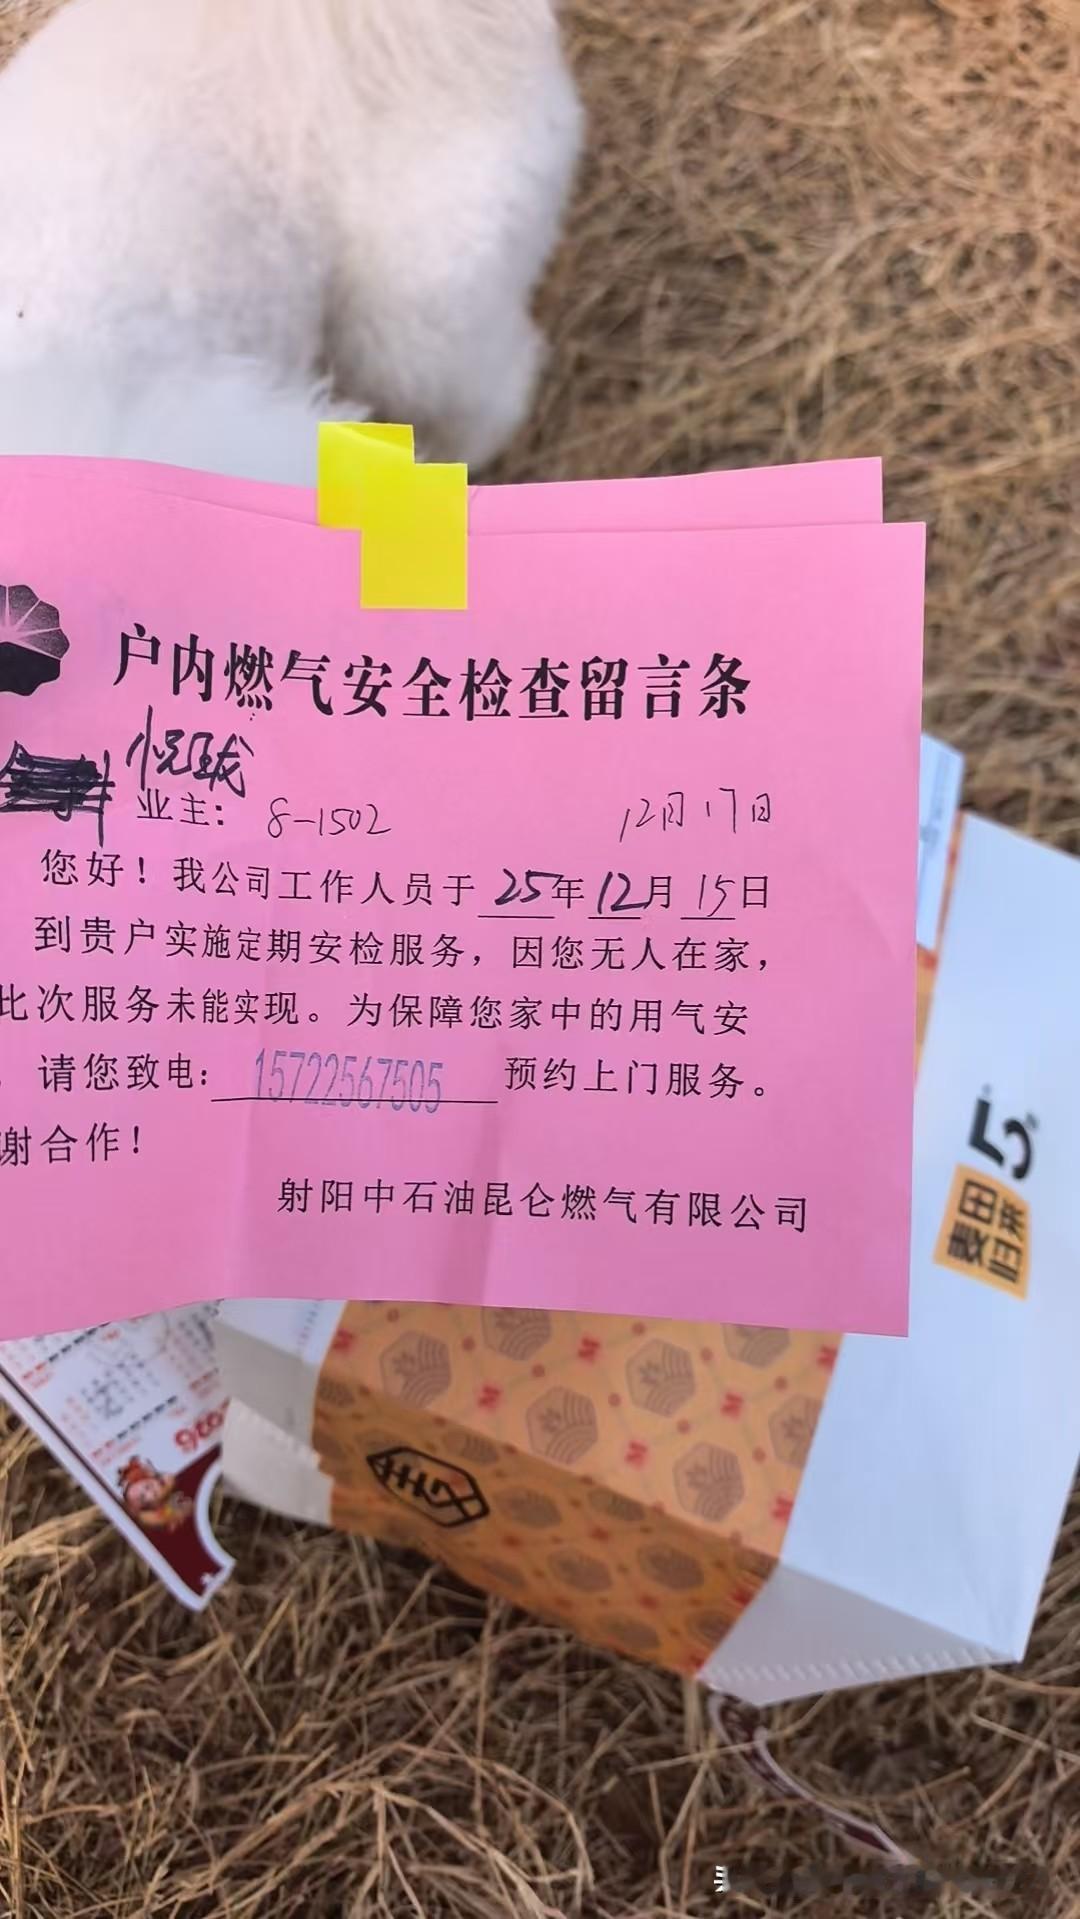 户内燃气安全检查留言条
悦珑
业主： 8-1502 12月17日
您好！我公司工作人员于 25年 12月 15日
到贵户实施定期安检服务，因您无人在家，
此次服务未能实现。为保障您家中的用气安
请您致电： 15722567505 预约上门服务。
谢合作！
射阳中石油昆仑燃气有限公司
麦田
归来
2026